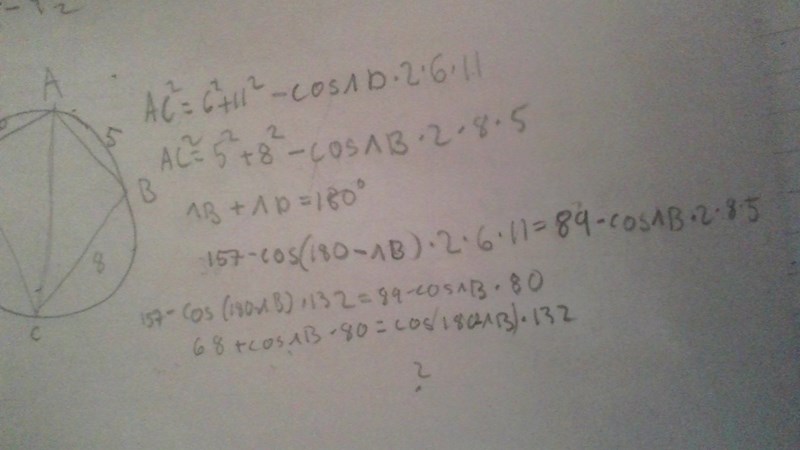 A
5
B
8
C
AC² = 6² + 11² - cos∧D · 2 · 6 · 11
AC² = 5² + 8² - cos∧B · 2 · 8 · 5
∧B + ∧D = 180°
157 - cos(180 - ∧B) · 2 · 6 · 11 = 89 - cos∧B · 2 · 8 · 5
157 - cos(180∧B) · 132 = 89 - cos∧B · 80
68 + cos∧B · 80 = cos(180∧B) · 132
?